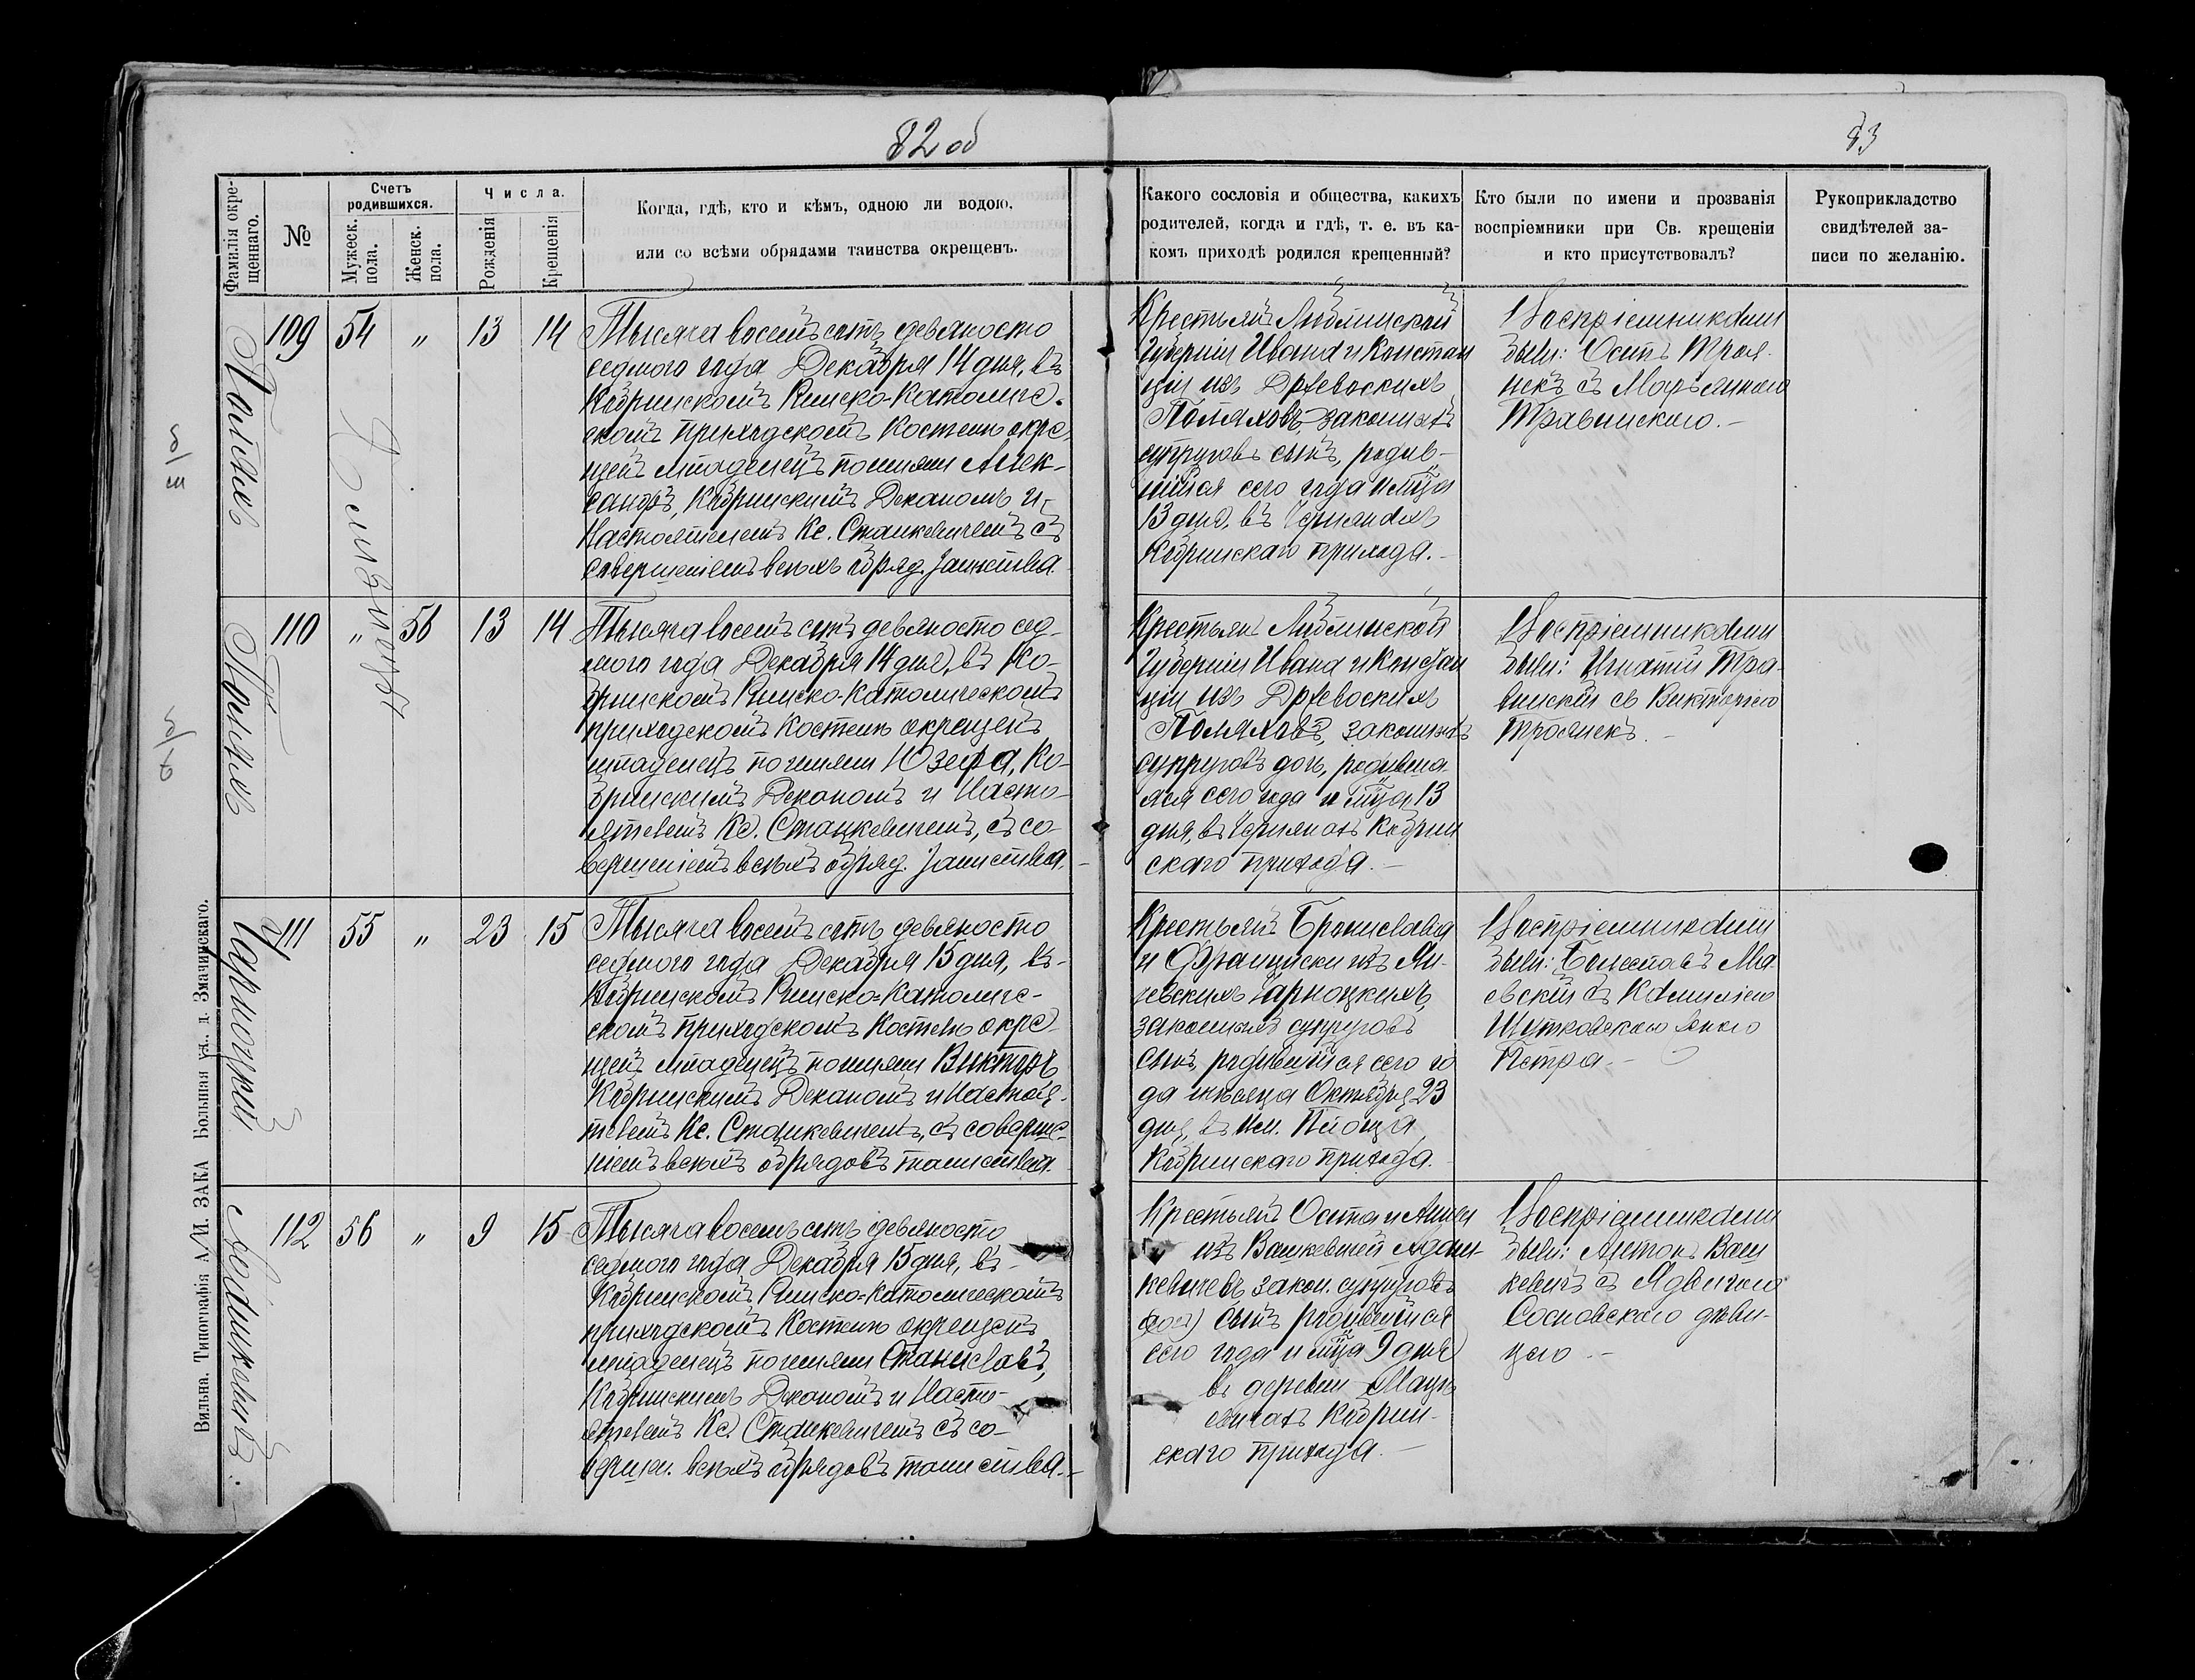 82 об
83
Фамилія окрещеннаго.
№
Счетъ родившихся.
Мужеск. пола.
Женск. пола.
Числа.
Рожденія
Крещенія
Когда, гдѣ, кто и кѣмъ, одною ли водою,
или со всѣми обрядами таинства окрещенъ.
Какого сословія и общества, какихъ
родителей, когда и гдѣ, т. е. въ ка-
комъ приходѣ родился крещенный?
Кто были по имени и прозванія
воспріемники при Св. крещеніи
и кто присутствовалъ?
Рукоприкладство
свидѣтелей за-
писи по желанію.
Поляхъ
109 54 " 13 14
Тысяча восемьсотъ девяносто
седмого года Декабря 14 дня, въ
Кобринскомъ Римско-Католиче-
скомъ приходскомъ Костелѣ окре-
щенъ младенецъ по имени Алек-
сандръ, Кобринскимъ Деканомъ и
Настоятелемъ Кс. Станкевичемъ съ
совершеніемъ всѣхъ обряд. таинства.
Крестьянъ Люблинской
Губерніи Ивана и Констан
ціи изъ Држевскихъ
Поляховъ, законныхъ
супруговъ сынъ, родив-
шійся сего года и мѣсца
13 дня, въ Чернянахъ
Кобринскаго прихода.-
Воспріемниками
были: Осипъ Троя-
некъ съ Марьянною
Травинскою.-
Близнецы
Поляхъ
110 " 56 13 14
Тысяча восемьсотъ девяносто сед-
мого года Декабря 14 дня, въ Ко-
бринскомъ Римско-Католическомъ
приходскомъ Костелѣ окрещенъ
младенецъ по имени Юзефа, Ко-
бринскимъ Деканомъ и Насто-
ятелемъ Кс. Станкевичемъ, съ со-
вершеніемъ всѣхъ обряд. таинства.
Крестьянъ Люблинской
Губерніи Ивана и Констан
ціи изъ Држевскихъ
Поляховъ, законныхъ
супруговъ дочь, родивша-
яся сего года и мѣсца 13
дня, въ Чернянахъ Кобрин
скаго прихода.-
Воспріемниками
были: Игнатій Тра-
винскій съ Викторіею
Троянекъ.-
Чарноцкій
111 55 " 23 15
Тысяча восемьсотъ девяносто
седмого года Декабря 15 дня, въ
Кобринскомъ Римско-Католиче-
скомъ приходскомъ Костелѣ окре-
щенъ младенецъ по имени Викторъ
Кобринскимъ Деканомъ и Настоя-
телемъ Кс. Станкевичемъ, съ соверше-
ніемъ всѣхъ обрядовъ таинства.
Крестьянъ Бронислава
и Франциски изъ
Чарноцкихъ,
законныхъ супруговъ
сынъ, родившійся сего го
да мѣсяца Октября 23
дня, въ им.
Кобринскаго прихода.
Воспріемниками
были: Болеславъ
съ
женою
Петра.-
112 56 " 9 15
Тысяча восемьсотъ девяносто
седмого года Декабря 15 дня, въ
Кобринскомъ Римско-Католическомъ
приходскомъ Костелѣ окрещенъ
младенецъ по имени Станиславъ,
Кобринскимъ Деканомъ и Насто-
ятелемъ Кс. Станкевичемъ съ со-
вершен. всѣхъ обрядовъ таинства.-
Крестьянъ Осипа и Анны
изъ Вашкевичей
закон. супруговъ
сынъ родившійся
сего года и мѣсца 9 дня
въ деревни
Кобрин-
скаго прихода.-
Воспріемниками
были: Антонъ Ваш
кевичъ съ Ядвигою
Сосновскою дѣви-
цею.-
Вильна. Типографія А./И. ЗАКА Большая ул., д. Змачинскаго.